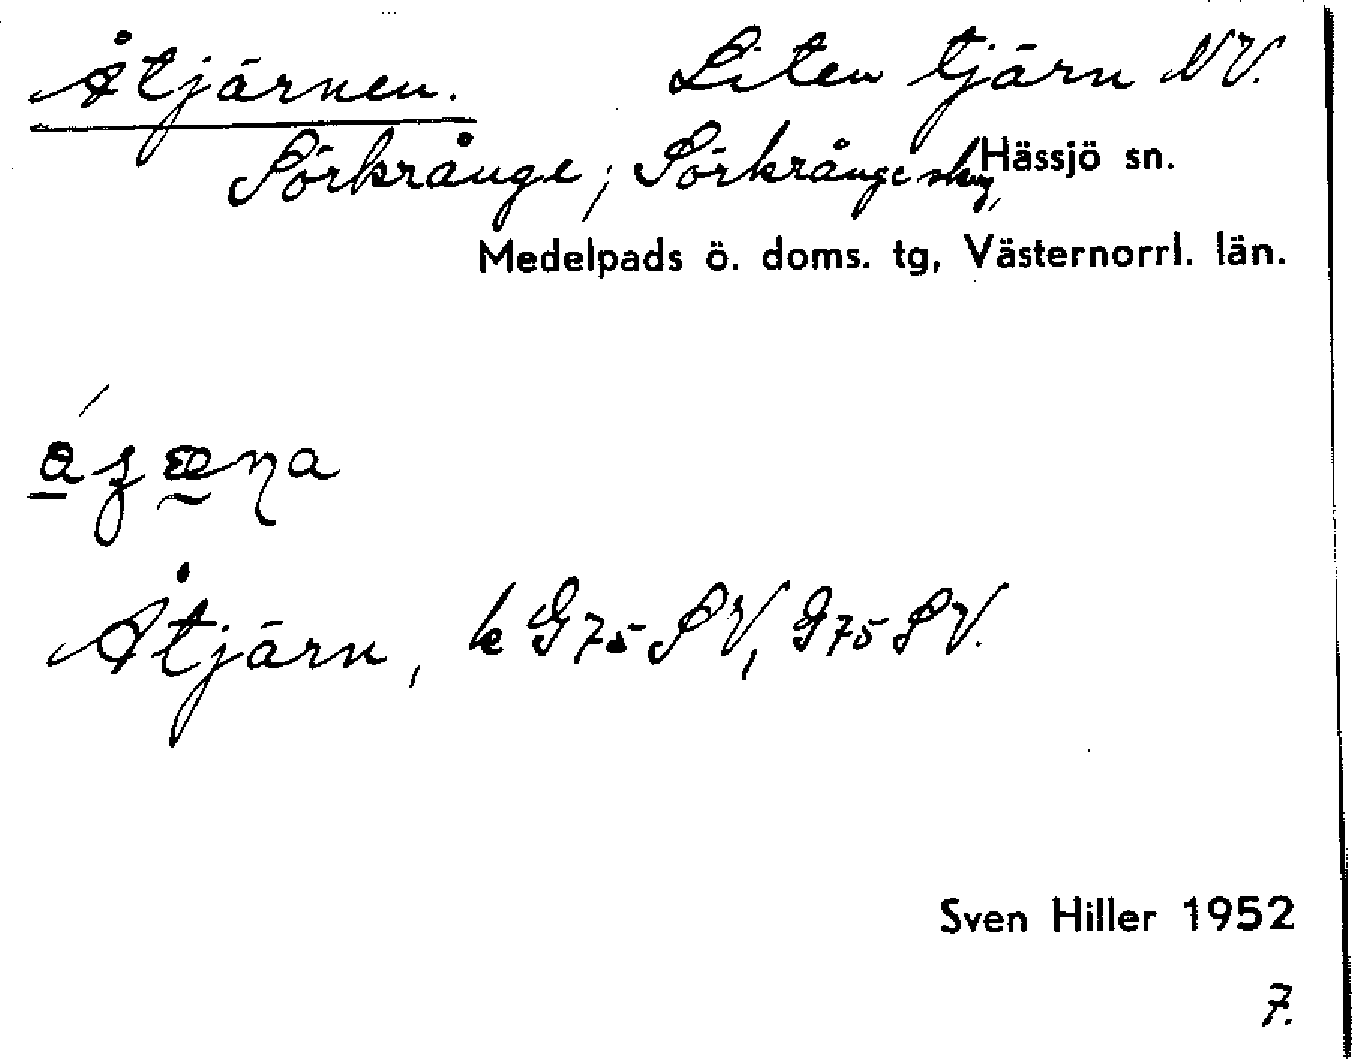 Åtjärnen. Liten tjärn NV.
Sörkrånge, Sörkrånge skog, Hässjö sn.
Medelpads ö. doms. tg, Västernorrl. län.
Åtjärn, k G75 SV, G75 SV.
Sven Hiller 1952
7.